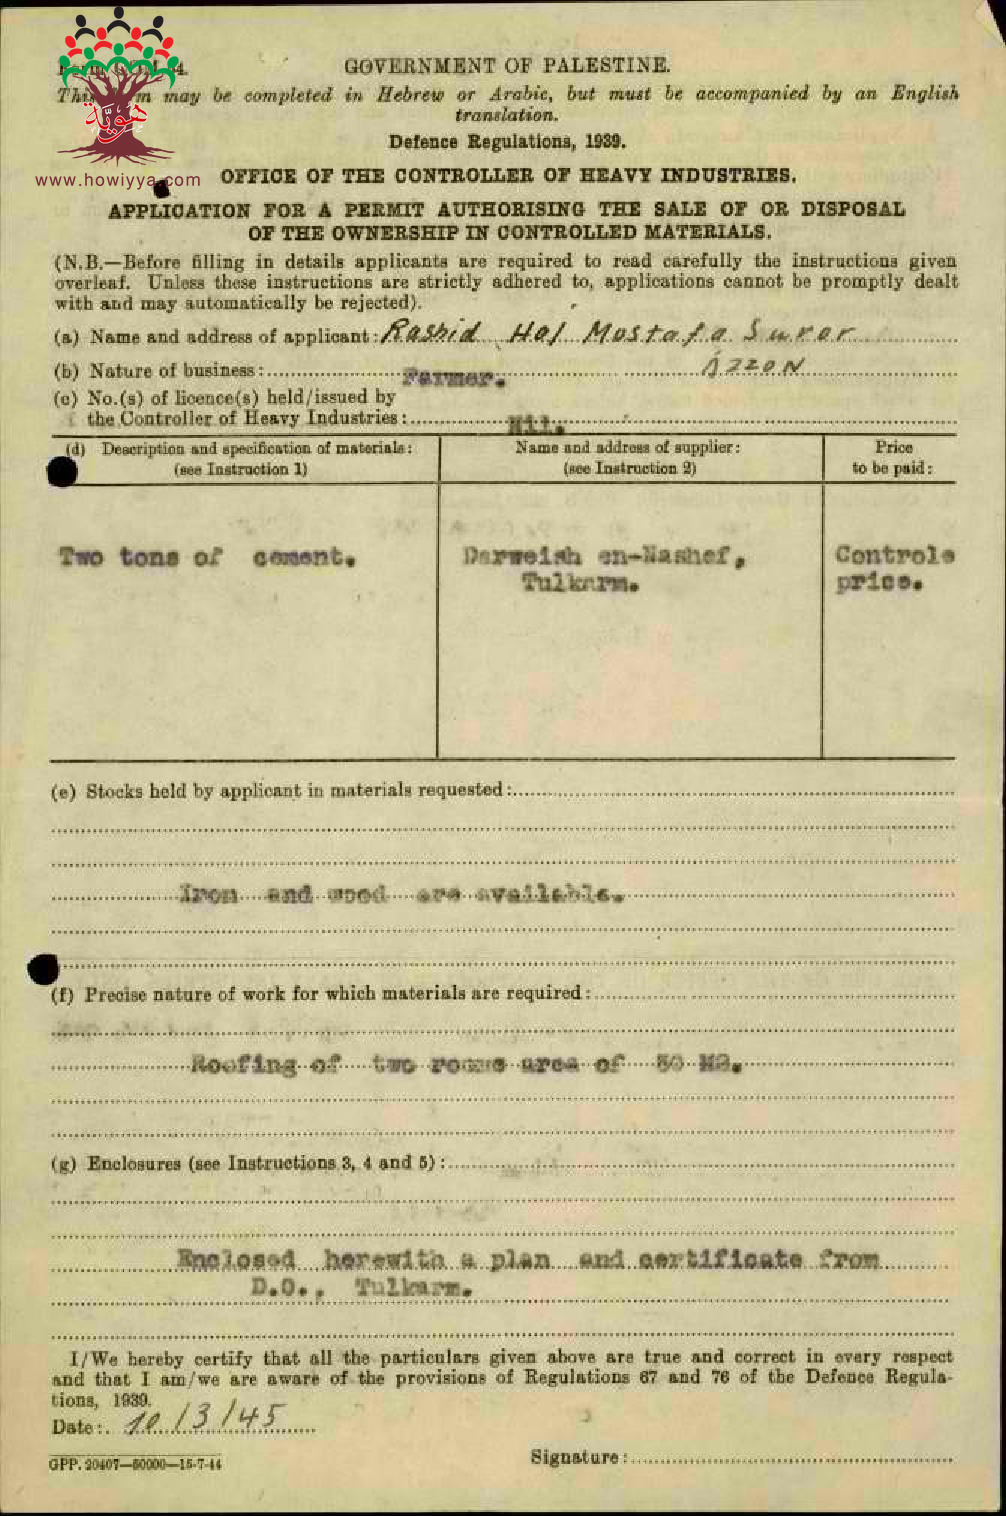 GOVERNMENT OF PALESTINE.
This may be completed in Hebrew or Arabic, but must be accompanied by an English
translation.
Defence Regulations, 1939.
هوية
www.howiyya.com
OFFICE OF THE CONTROLLER OF HEAVY INDUSTRIES.
APPLICATION FOR A PERMIT AUTHORISING THE SALE OF OR DISPOSAL
OF THE OWNERSHIP IN CONTROLLED MATERIALS.
(N.B.—Before filling in details applicants are required to read carefully the instructions given
overleaf. Unless these instructions are strictly adhered to, applications cannot be promptly dealt
with and may automatically be rejected).
(a) Name and address of applicant: Rashid Haj Mostafa Suror
(b) Nature of business: Farmer. AZZON
(c) No.(s) of licence(s) held/issued by
the Controller of Heavy Industries: Nil.
(d) Description and specification of materials: Name and address of supplier: Price
(see Instruction 1) (see Instruction 2) to be paid:
Two tons of cement. Darweish en-Nashef, Controle
Tulkarm. price.
(e) Stocks held by applicant in materials requested:
Iron and wood are available.
(f) Precise nature of work for which materials are required:
Roofing of two rooms area of 50 M2.
(g) Enclosures (see Instructions 3, 4 and 5):
Enclosed herewith a plan and certificate from
D.O., Tulkarm.
I/We hereby certify that all the particulars given above are true and correct in every respect
and that I am/we are aware of the provisions of Regulations 67 and 76 of the Defence Regula-
tions, 1939.
Date: 10/3/45
GPP. 20407—50000—15-7-44 Signature: